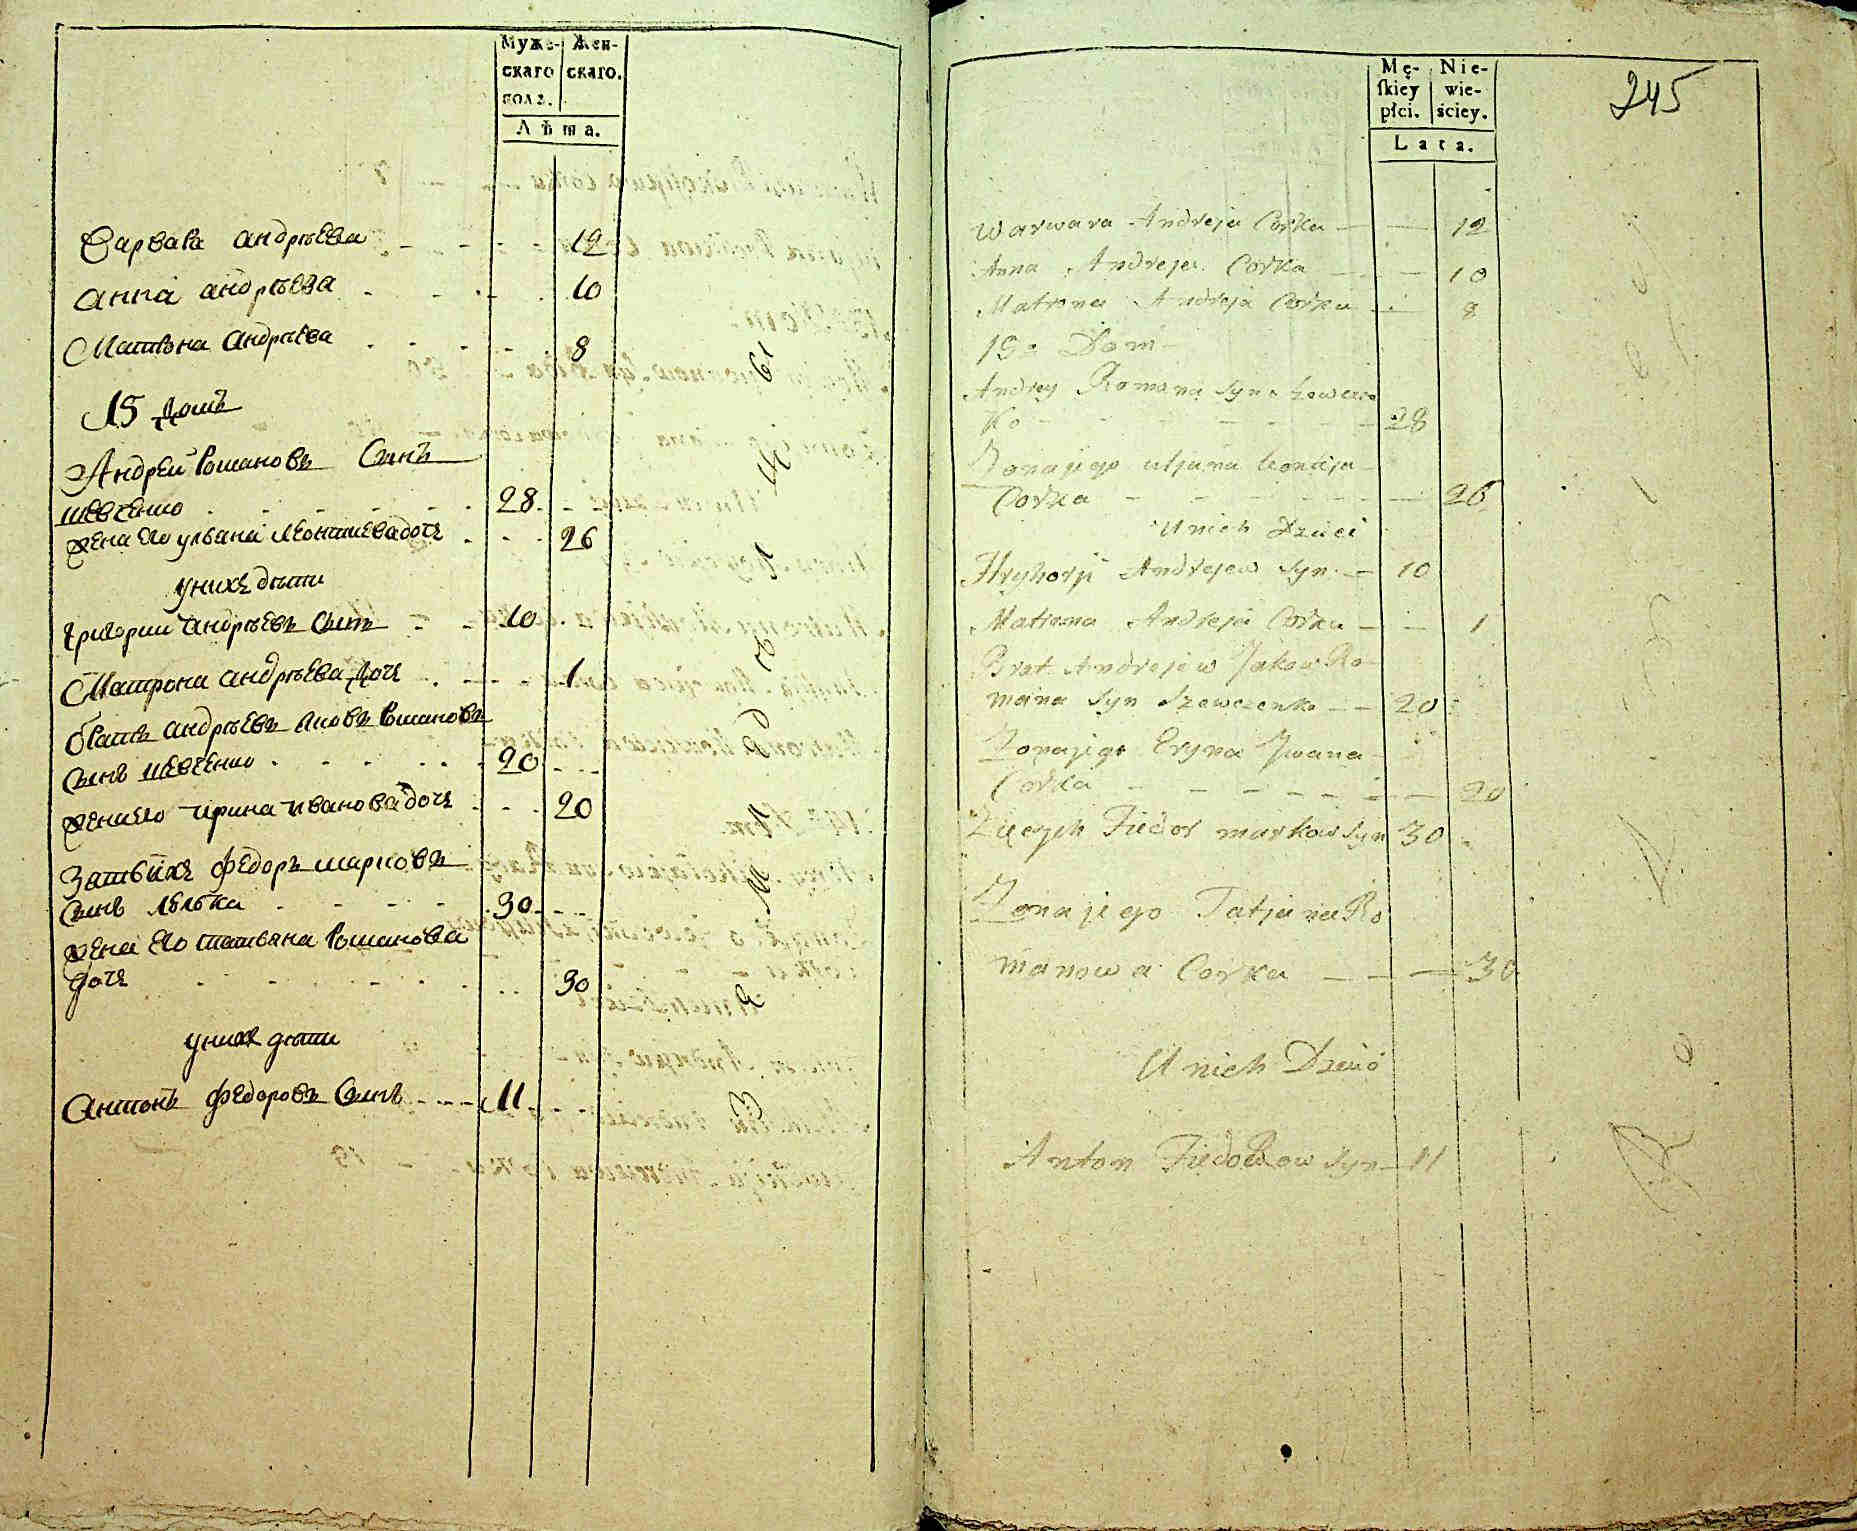 Муже- Жен-
скаго скаго.
полъ.
Лѣта.
Варвара андрѣева - - - - 12
анна андрѣева - - - 10
Матрона андрѣева . . . . 8
15 домъ
Андрей Романовъ Сынъ
шевченко . . . . . 28
жена его ульяна леонтиева дочь . . . 26
у нихъ дѣти
григорий андрѣевъ Сынъ - - - 10
Матрона андрѣева дочь . - - - 1
братъ андрѣевъ яковъ Романовъ
Сынъ шевченко . . . . . 20
жена его ирина иванова дочь . . . 20
зять ихъ федоръ марковъ
Сынъ . . . . 30
жена его татьяна Романова
дочь . . . . . . 30
у нихъ дѣти
антонъ федоровъ Сынъ - - - - 11
Mę- Nie-
skiey wie-
płci. ściey.
Lata.
245
Warwara Andreja Corka — — 12
Anna Andreja Corka — — 10
Matrona Andreja Corka — 8
15o Dom
Andrey Romana syn Szewczen
Ko - - - - - - 28
Zona jego uljana leontija
Corka - - - - - - 26
U nich Dzieci
Hryhorji Andrejew syn — 10
Matrona Andreja Corka — — 1
Brat Andrejew Jakow Ro-
mana syn Szewczenko — — 20
Zona jego Eryna Jwana
Corka - - - - - - — 20
Zięc ych Fiedor markow syn 30
Zona jego Tatjana Ro
manowa Corka — — — 30
U nich Dzieci
Anton Fiedorow syn — 11